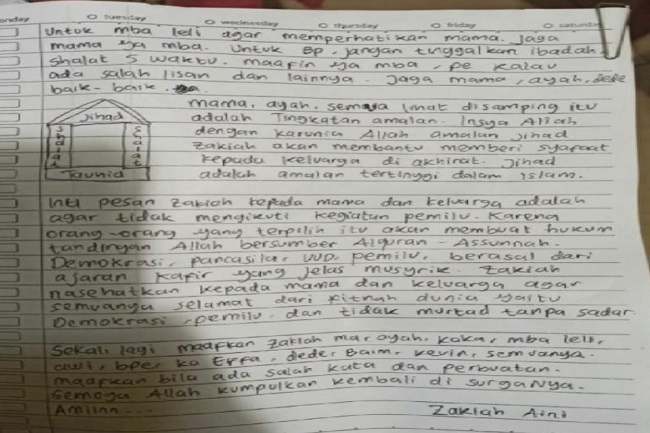 onday tuesday wednesday thursday friday saturda
Untuk mba leli agar memperhatikan mama. Jaga
mama ya mba. Untuk BP. jangan tinggalkan ibadah
Shalat 5 waktu. maafin ya mba, pe kalau
ada salah lisan dan lainnya. Jaga mama, ayah, dede
baik-baik.
mama, ayah, semua lihat disamping itu
Jihad
adalah Tingkatan amalan. Insya Allah
dengan karunia Allah amalan jihad
Shalat
Shalat
Zakiah akan membantu memberi syafaat
kepada keluarga di akhirat. Jihad
Tauhid
adalah amalan tertinggi dalam islam.
Inti pesan Zakiah kepada mama dan keluarga adalah
agar tidak mengikuti kegiatan pemilu. Karena
orang-orang yang terpilih itu akan membuat hukum
tandingan Allah bersumber Alquran - Assunnah.
Demokrasi, pancasila, UUD, pemilu, berasal dari
ajaran kafir yang jelas musyrik. Zakiah
nasehatkan kepada mama dan keluarga agar
semuanya selamat dari fitnah dunia yaitu
Demokrasi, pemilu, dan tidak murtad tanpa sadar.
Sekali lagi maafkan Zakiah mar ayah, kaka, mba leli,
bper ka Effa, dede, Baim, Kevin, semuanya.
maafkan bila ada salah kata dan perbuatan.
Semoga Allah kumpulkan kembali di surgaNya.
Amiinn...
Zakiah Aini